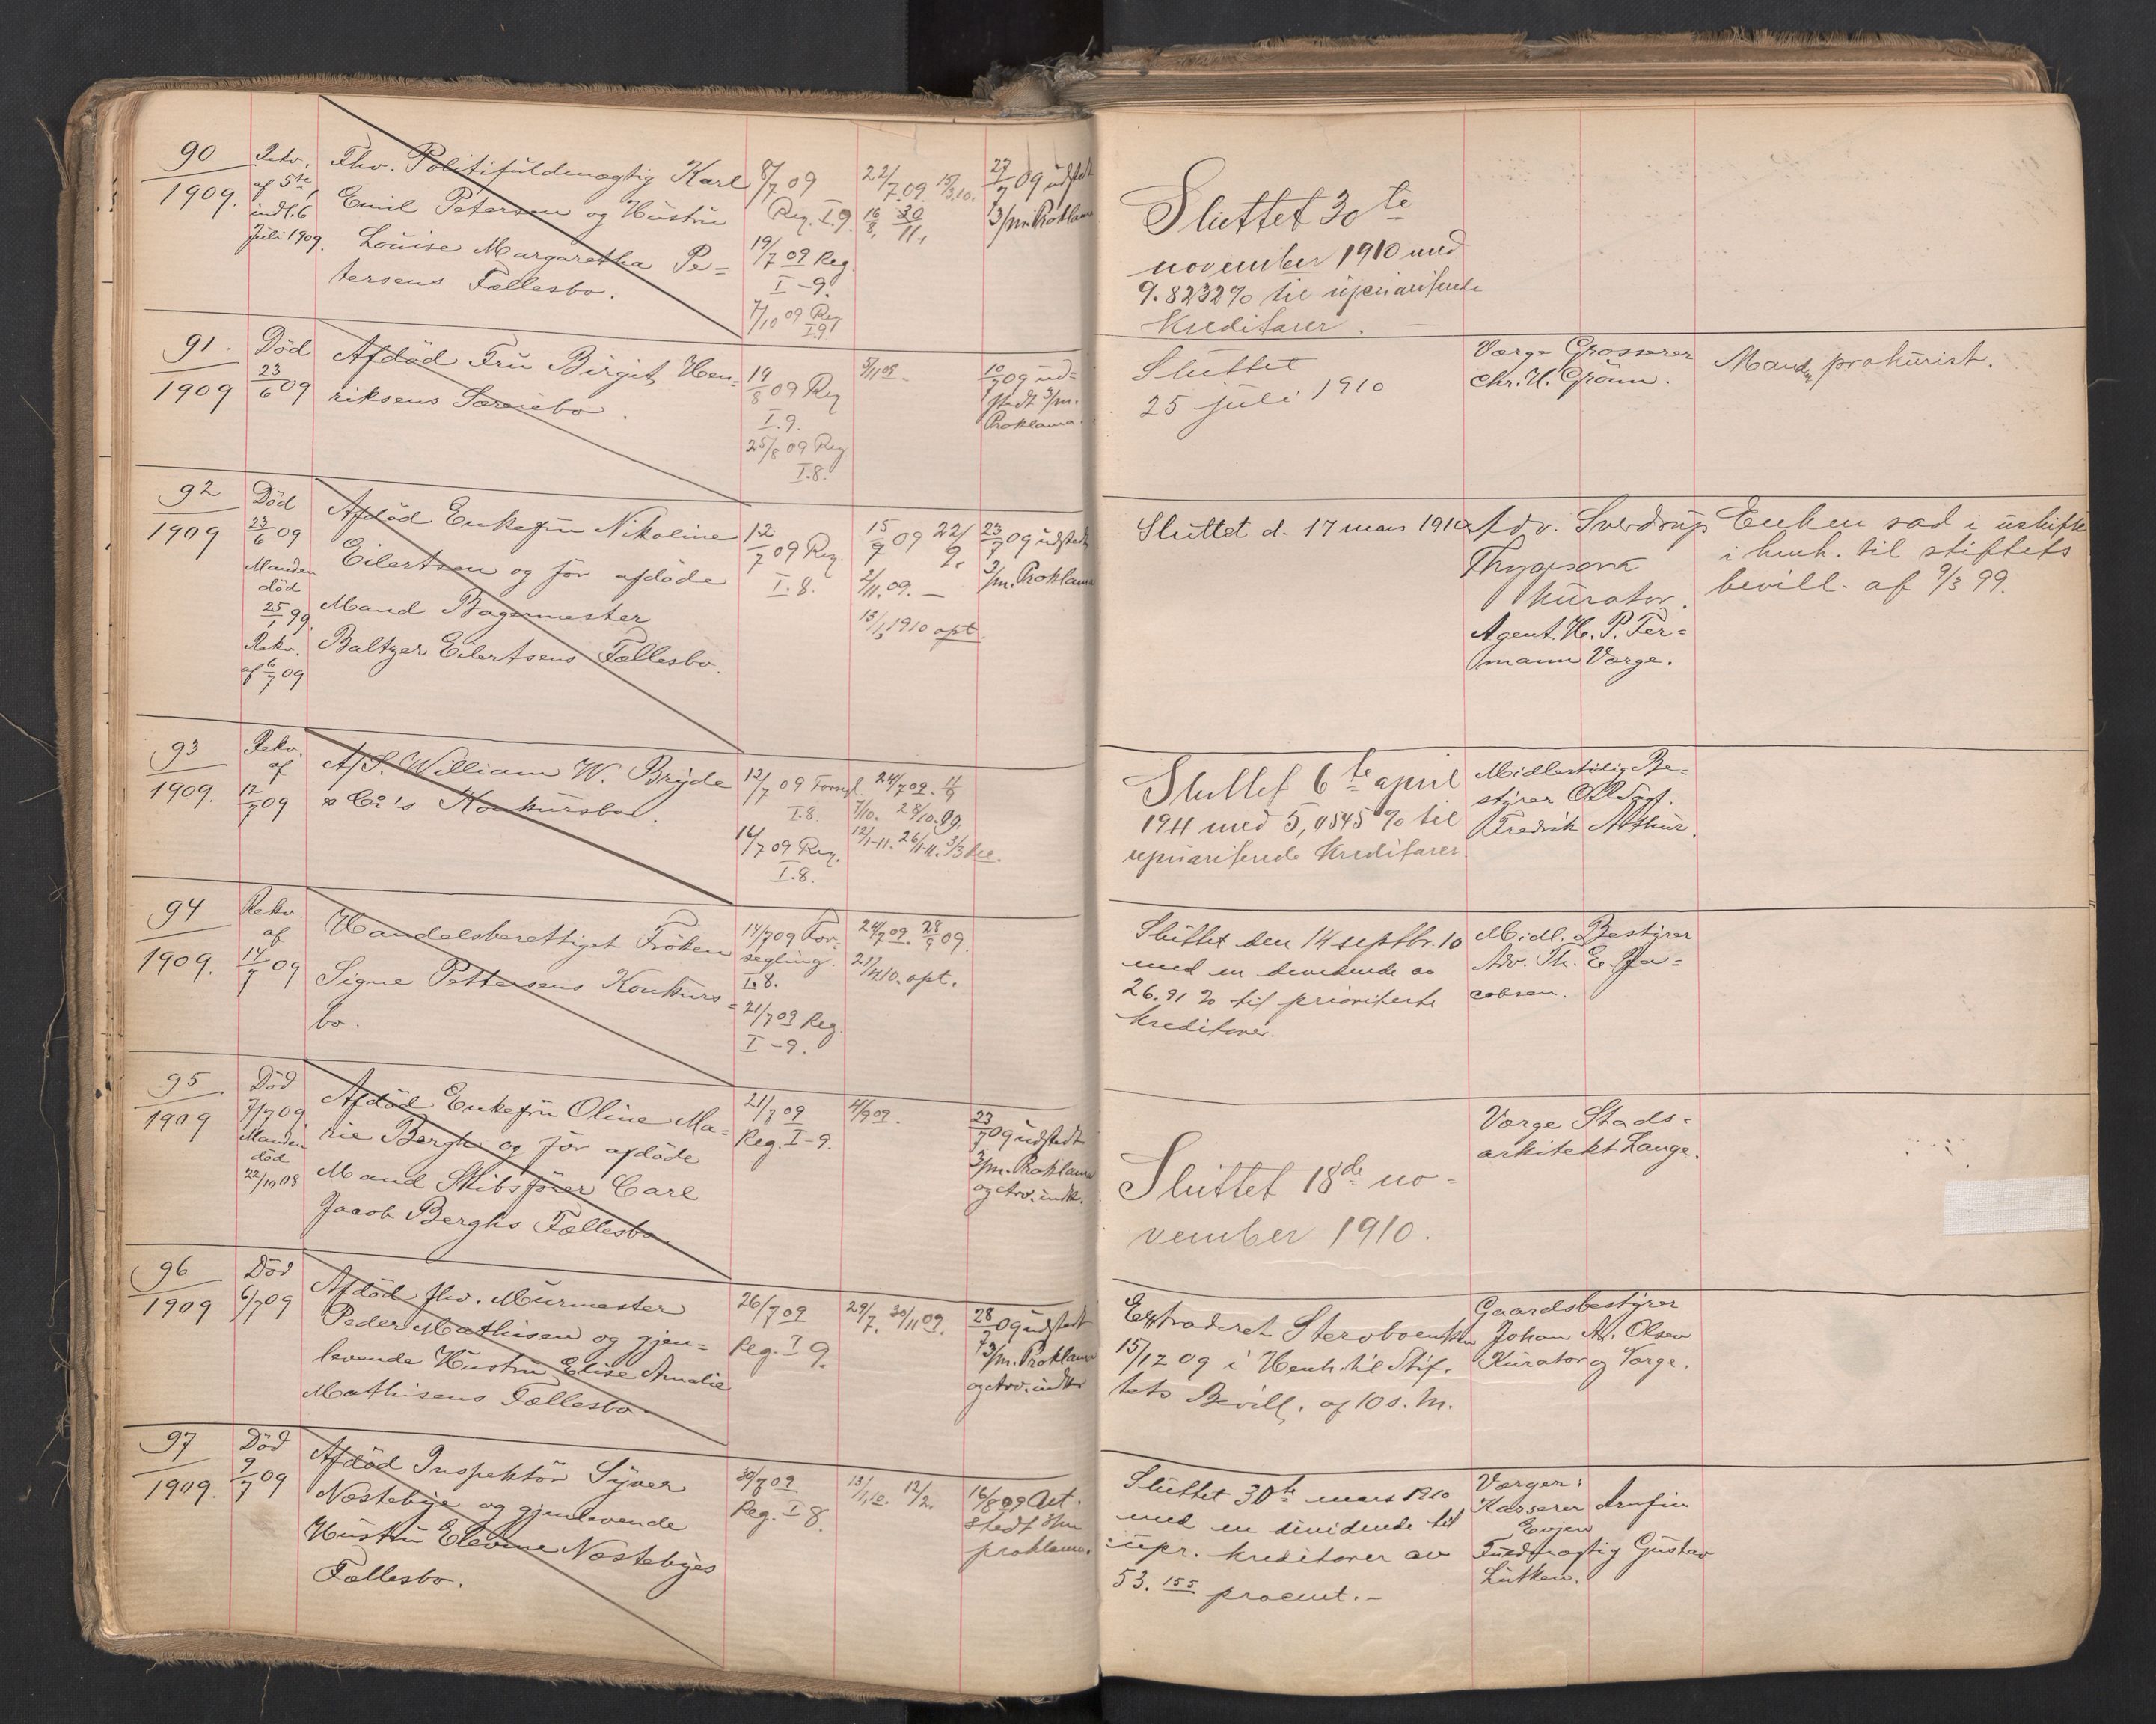 90
1909.
Rekv.
af 5te,
indl. 6
Juli 1909.
Fhv. Politifuldmægtig Karl
Emil Petersen og Hustru
Louise Margaretha Pe=
tersens Fællesbo.
8/7 09
Reg. I.9.
19/7 09 Reg.
I-9.
7/10 09 Reg
I.9.
22/7.09. 15/3.10.
16/8, 30/11.,
27/7 09 udstedt
3/m. Proklama
Sluttet 30te
november 1910 med
9.8232% til upriariterte
kreditorer.
91.
1909
Död
23/6 09
Afdöd Fru Birgit Hen=
riksens Særeiebo.
19/8 09 Reg
I.9.
25/8 09 Reg
I.8.
10/7 09 ud=
stedt 3/m.
Proklama.
Sluttet
25 juli 1910
Værge Grosserer
Chr. H. Grönn.
Manden, prokurist.
92
1909
Död
23/6 09
Manden
död
25/1 99.
Rekv.
af 6/7 09
Afdöd Enkefru Nikoline
Eilertsen og för afdöde
Mand Bagermester
Baltzer Eilertsens Fællesbo.
12/7 09 Reg.
I.8.
15/9 09 22/9.
2/11.09. —
15/1, 1910 opt.
23/7 09 udstedt
3/m. Proklama
Sluttet d. 17 mars 1910
Adv. Sverdrup
Thygeson
kurator.
Agent. H. P. Fer=
mann Værge.
Enken sad i uskifte
i henh. til stiftets
bevill. af 9/3 99.
93
1909.
Rekv.
af
12/7 09
A/S. William W. Bryde
& Co's Konkursbo.
12/7 09 Forsegl.
I.8.
14/7 09 Reg.
I.8.
24/7 09. 11/9
7/10. 28/10.09.
12/1-11. 26/1-11. 3/3
Sluttet 6te april
1911 med 5,4545% til
upriariterede kreditorer.
Midlertidig Be=
styrer
Fredrik Arthur.
94
1909.
Rekv.
af
14/7 09
Handelsberettiget Fröken
Signe Pettersens Konkurs=
bo.
14/7 09 For=
segling.
I.8.
21/7 09 Reg.
I-9.
24/7 09. 28/9 09.
21/4 10. opt.
Sluttet den 14 septbr. 10
med en dividende av
26.91% til prioriterte
kreditorer.
Midl. Bestyrer
Adv. Th. E. Ja=
cobsen.
95
1909
Död
7/7 09
Manden
död
22/10 08
Afdöd Enkefru Oline Ma=
rie Bergh og för afdöde
Mand Skibsförer Carl
Jacob Berghs Fællesbo.
21/7 09
Reg. I-9.
4/9 09.
23/7 09 udstedt
3/m. Proklama
og Arv. indk.
Sluttet 18de no=
vember 1910.
Værge Stads-
arkitekt Lange.
96
1909
Död
6/7 09
Afdöd fhv. Murmester
Peder Mathisen og gjen=
levende Hustru Elise Amalie
Mathisens Fællesbo.
26/7 09
Reg. I 9.
29/7. 30/11 09.
28/7 09 udstedt
3/m. Proklama
og Arv. indk
Extraderet Sterboenken
15/12 09 i Henh. til Stif-
tets Bevill. af 10 s. M.
Gaardsbestyrer
Johan A. Olsen
Kurator og Værge.
97
1909.
Död
9/7 09
Afdöd Inspektör Syver
Næstebye og gjenlevende
Hustru Elevine Næstebyes
Fællesbo.
30/7 09
Reg. I 8.
13/1,10. 12/2.
16/8 09 Ut-
stedt 3/m
proklama.
Sluttet 30te mars 1910
med en dividende til
upr. kreditorer av
53.155 procent.-
Værger:
Kasserer Arnfin
Evjen
Fuldmægtig Gustav
Lütken.